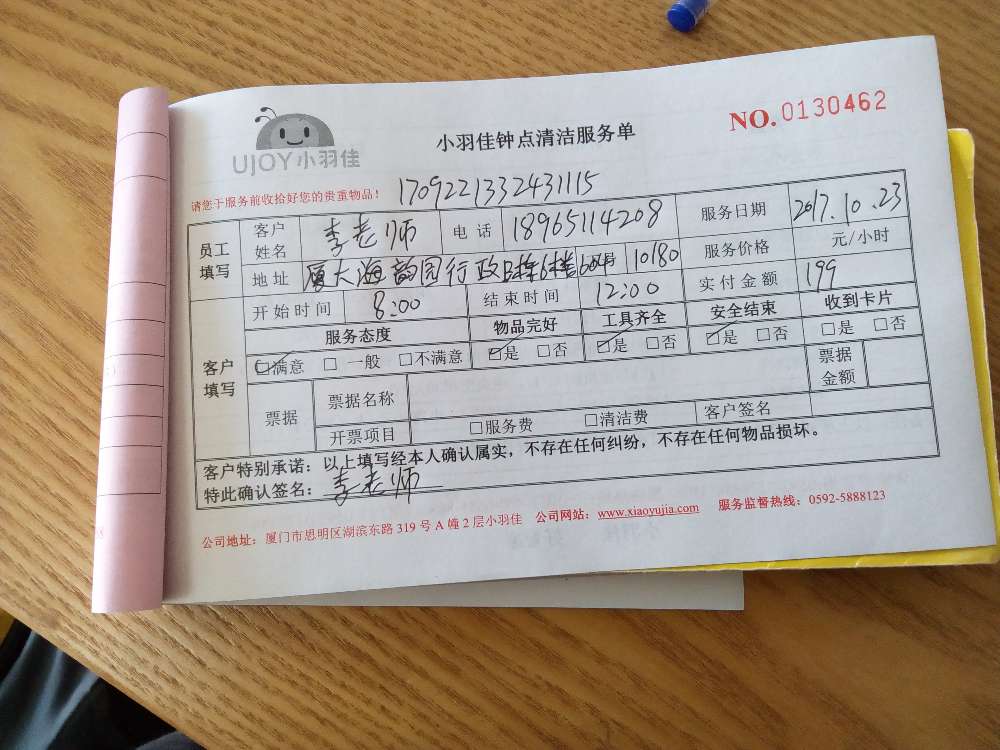 UJOY小羽佳
小羽佳钟点清洁服务单
NO.0130462
请您于服务前收拾好您的贵重物品！ 1709221332431115
员工填写 客户姓名 李老师 电话 18965114208 服务日期 2017.10.23
地址 厦大海韵园行政B栋6楼 10180 服务价格 元/小时
客户填写 开始时间 8:00 结束时间 12:00 实付金额 199
服务态度 物品完好 工具齐全 安全结束 收到卡片
☑满意 □一般 □不满意 ☑是 □否 ☑是 □否 ☑是 □否 □是 □否
票据 票据名称 票据金额
开票项目 □服务费 □清洁费 客户签名
客户特别承诺：以上填写经本人确认属实，不存在任何纠纷，不存在任何物品损坏。
特此确认签名：李老师
公司地址：厦门市思明区湖滨东路319号A幢2层小羽佳 公司网站：www.xiaoyujia.com 服务监督热线：0592-5888123